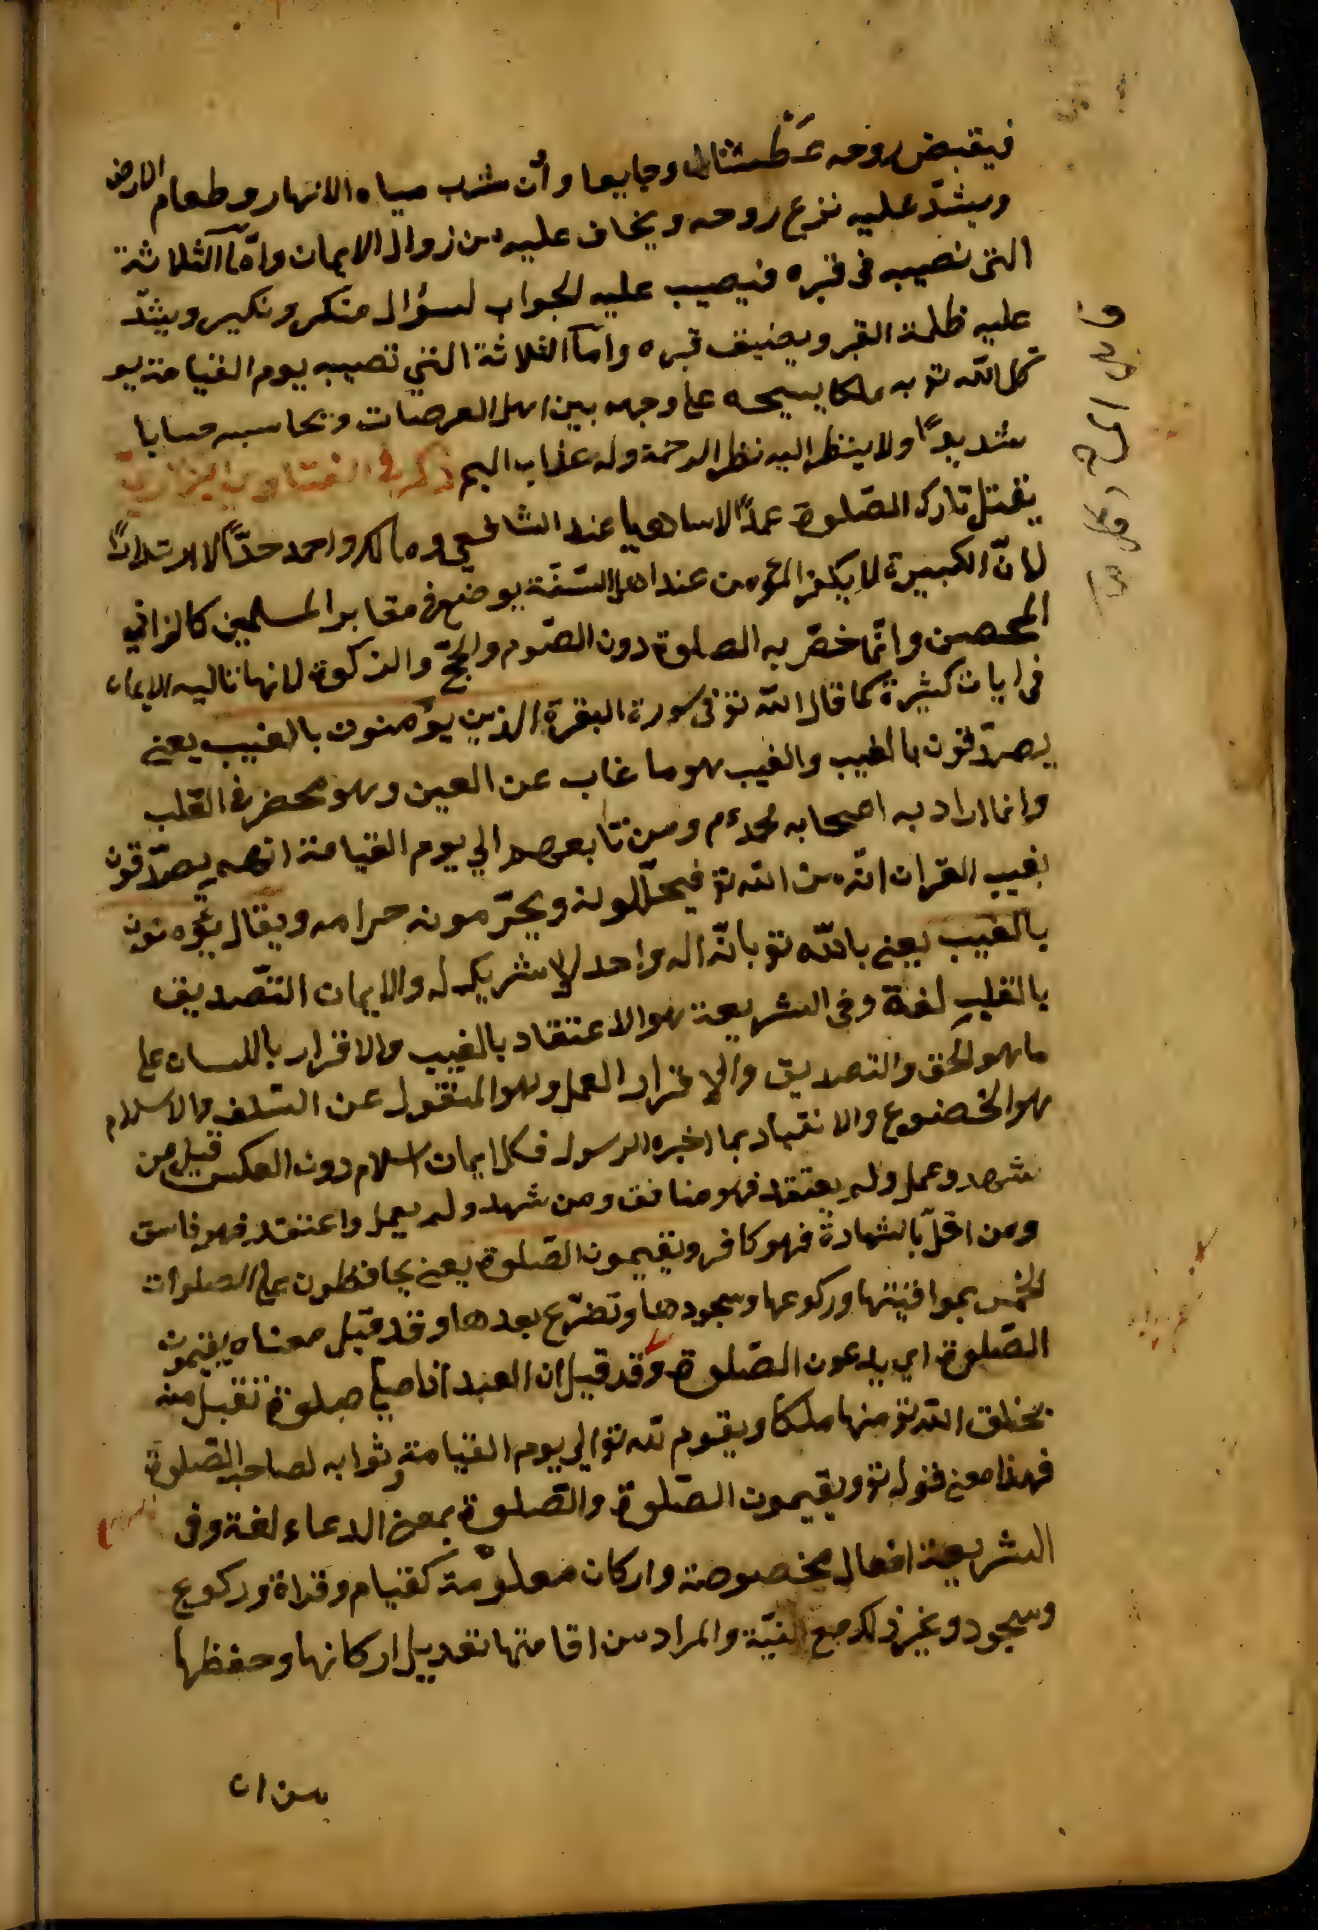 فيقبض روحه عطشانا وجايعا وان شرب مياه الانهار وطعام الارض
ويشدّ عليه نزع روحه ويخاف عليه من زوال الايمان وامّا الثلاثة
التى تصيبه فى قبره فيصيب عليه الجواب لسؤال منكر ونكير ويشدّ
عليه ظلمة القبر ويضيق قبره وامّا الثلاثة التي تصيبه يوم القيامة يو
كل الله تع به ملكا يسحبه على وجهه بين اهل العرصات ويحاسبه حسابا
شديدًا ولا ينظر اليه نظر الرحمة وله عذاب اليم ذكر في الفتاوي البزازية
يقتل تارك الصّلوة عمدًا لا ساهيا عند الشافعي ومالك واحمد حدّا لا ارتدادًا
لانّ الكبيرة لا يكفر المؤمن عند اهل السّنّة يوضع في مقابر المسلمين كالزاني
المحصن وانّما خصّ به الصلوة دون الصّوم والحجّ والزكوة لانها تاليه الايمان
فى ايات كثيرة كما قال الله تع فى سورة البقرة الذين يؤمنون بالغيب يعنى
يصدّقون بالغيب والغيب هو ما غاب عن العين وهو محضر فى القلب
وانما اراد به اصحابه محمد ءم ومن تتابعهم الي يوم القيامة انهم يصدّقون
بغيب القران انّه من الله تع فيحلّلونه ويحرّمون حرامه ويقال يؤمنون
بالغيب يعنى بالله تع بانّه اله واحد لا شريك له والايمان التصديق
بالقلب لغة وفى الشريعة هو الاعتقاد بالغيب والاقرار باللسان على
ما هو الحق والتصديق والاقرار العمل وهو المنقول عن السّلف والاسلام
هو الخضوع والانقياد بما اخبره الرسول فكل ايمان اسلام دون العكس قيل من
شهد وعمل ولم يعتقد فهو منافق ومن شهد ولم يعمل واعتقد فهو فاسق
ومن اخلّ بالشهادة فهو كافر ويقيمون الصّلوة يعنى يحافظون على الصلوات
الخمس بمواقيتها وركوعها وسجودها وتضرّع بعدها وقد قيل معناه يقيمون
الصّلوة اى يدعون الصّلوة وقد قيل ان العبد اذا صلى صلوة تقبل منه
يخلق الله تع منها ملكا ويقوم لله تع الي يوم القيامة وثوابه لصاحب الصّلوة
فهذا معنى قوله تع ويقيمون الصّلوة والصّلوة بمعنى الدعاء لغة وفى
الشريعة افعال مخصوصة واركان معلومة كقيام وقراة وركوع
وسجود وغير ذلك مع النيّة والمراد من اقامتها تعديل اركانها وحفظها
من ان